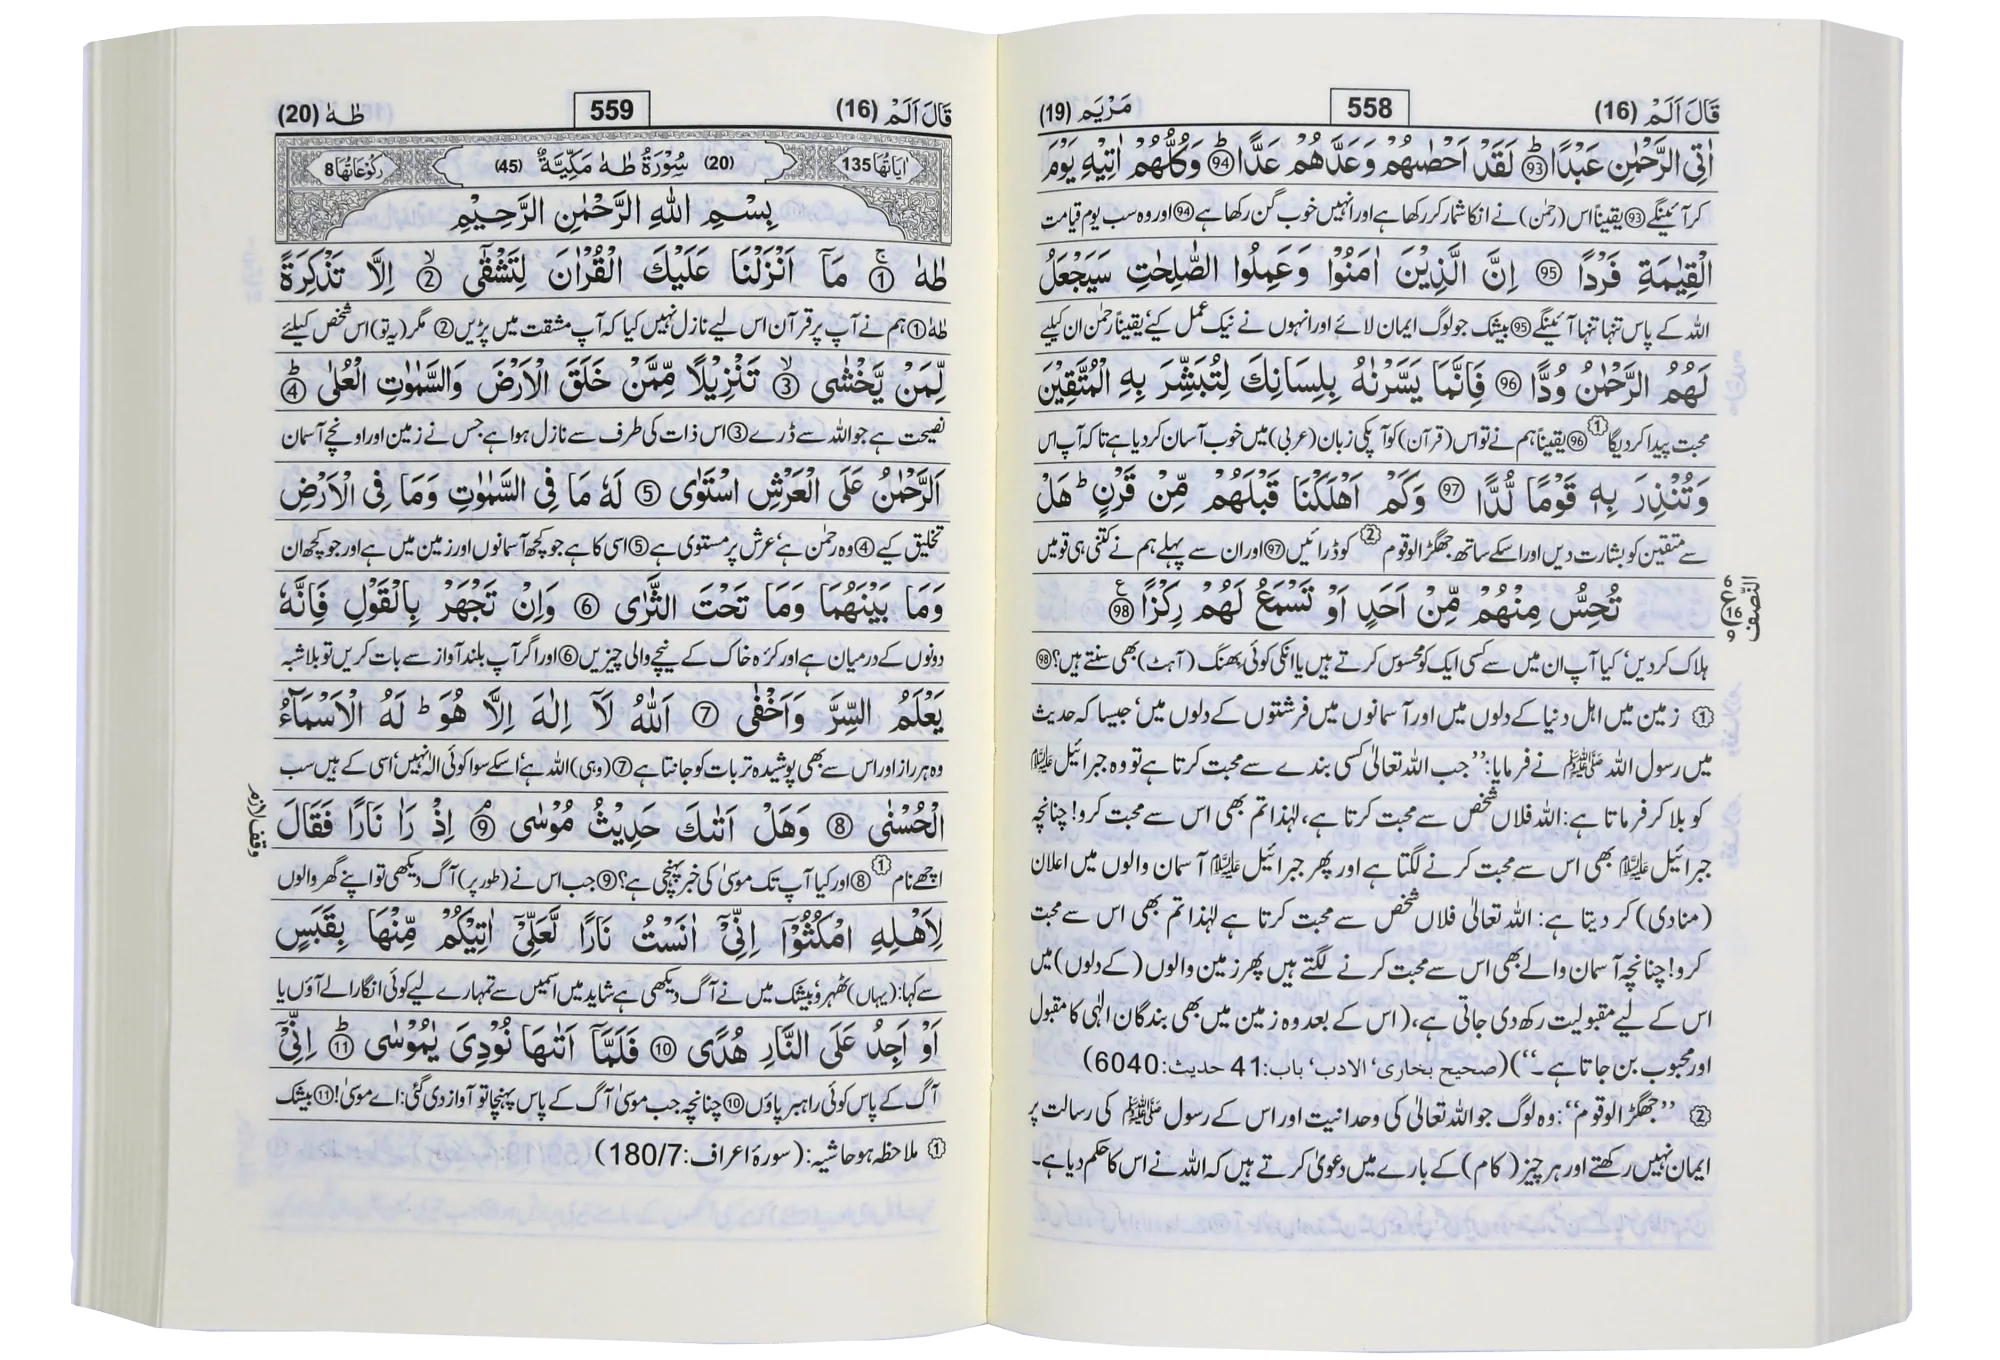 قَالَ اَلَمْ (16)
558
مَرْيَم (19)
اٰتِى الرَّحْمٰنِ عَبْدًا ؕ 93 لَقَدْ اَحْصٰىهُمْ وَعَدَّهُمْ عَدًّا ؕ 94 وَكُلُّهُمْ اٰتِيْهِ يَوْمَ
کر آئینگے 93 یقیناً اس (رحمٰن) نے انکا شمار کر رکھا ہے اور انہیں خوب گن رکھا ہے 94 اور وہ سب یوم قیامت
الْقِيٰمَةِ فَرْدًا 95 اِنَّ الَّذِيْنَ اٰمَنُوْا وَعَمِلُوا الصّٰلِحٰتِ سَيَجْعَلُ
اللہ کے پاس تنہا تنہا آئینگے 95 بیشک جو لوگ ایمان لائے اور انہوں نے نیک عمل کیے، یقیناً رحمٰن ان کیلیے
لَهُمُ الرَّحْمٰنُ وُدًّا 96 فَاِنَّمَا يَسَّرْنٰهُ بِلِسَانِكَ لِتُبَشِّرَ بِهِ الْمُتَّقِيْنَ
محبت پیدا کر دیگا 1 96 یقیناً ہم نے تو اس (قرآن) کو آپکی زبان (عربی) میں خوب آسان کر دیا ہے تاکہ آپ اس
وَتُنْذِرَ بِهٖ قَوْمًا لُّدًّا 97 وَكَمْ اَهْلَكْنَا قَبْلَهُمْ مِّنْ قَرْنٍ ؕ هَلْ
سے متقین کو بشارت دیں اور اسکے ساتھ جھگڑالو قوم 2 کو ڈرائیں 97 اور ان سے پہلے ہم نے کتنی ہی قومیں
تُحِسُّ مِنْهُمْ مِّنْ اَحَدٍ اَوْ تَسْمَعُ لَهُمْ رِكْزًا 98
ہلاک کر دیں، کیا آپ ان میں سے کسی ایک کو محسوس کرتے ہیں یا انکی کوئی بھنگ (آہٹ) بھی سنتے ہیں؟ 98
النّصف
16
1 زمین میں اہل دنیا کے دلوں میں اور آسمانوں میں فرشتوں کے دلوں میں، جیسا کہ حدیث
میں رسول اللہ ﷺ نے فرمایا: ’’جب اللہ تعالیٰ کسی بندے سے محبت کرتا ہے تو وہ جبرائیل علیہ السلام
کو بلا کر فرماتا ہے: اللہ فلاں شخص سے محبت کرتا ہے، لہٰذا تم بھی اس سے محبت کرو! چنانچہ
جبرائیل علیہ السلام بھی اس سے محبت کرنے لگتا ہے اور پھر جبرائیل علیہ السلام آسمان والوں میں اعلان
(منادی) کر دیتا ہے: اللہ تعالیٰ فلاں شخص سے محبت کرتا ہے لہٰذا تم بھی اس سے محبت
کرو! چنانچہ آسمان والے بھی اس سے محبت کرنے لگتے ہیں پھر زمین والوں (کے دلوں) میں
اس کے لیے مقبولیت رکھ دی جاتی ہے، (اس کے بعد وہ زمین میں بھی بندگان الٰہی کا مقبول
اور محبوب بن جاتا ہے۔‘‘) (صحیح بخاری، الادب، باب: 41 حدیث: 6040)
2 ’’جھگڑالو قوم‘‘: وہ لوگ جو اللہ تعالیٰ کی وحدانیت اور اس کے رسول ﷺ کی رسالت پر
ایمان نہیں رکھتے اور ہر چیز (کام) کے بارے میں دعویٰ کرتے ہیں کہ اللہ نے اس کا حکم دیا ہے۔
قَالَ اَلَمْ (16)
559
طٰهٰ (20)
اٰيَاتُهَا 135
(20) سُوْرَةُ طٰهٰ مَكِّيَّةٌ (45)
رُكُوْعَاتُهَا 8
بِسْمِ اللهِ الرَّحْمٰنِ الرَّحِيْمِ
طٰهٰ ۚ 1 مَاۤ اَنْزَلْنَا عَلَيْكَ الْقُرْاٰنَ لِتَشْقٰٓى ۙ 2 اِلَّا تَذْكِرَةً
طٰہٰ 1 ہم نے آپ پر قرآن اس لیے نازل نہیں کیا کہ آپ مشقت میں پڑیں 2 مگر (یہ تو) اس شخص کیلئے
لِّمَنْ يَّخْشٰى ۙ 3 تَنْزِيْلًا مِّمَّنْ خَلَقَ الْاَرْضَ وَالسَّمٰوٰتِ الْعُلٰى ؕ 4
نصیحت ہے جو اللہ سے ڈرے 3 اس ذات کی طرف سے نازل ہوا ہے جس نے زمین اور اونچے آسمان
اَلرَّحْمٰنُ عَلَى الْعَرْشِ اسْتَوٰى 5 لَهٗ مَا فِى السَّمٰوٰتِ وَمَا فِى الْاَرْضِ
تخلیق کیے 4 وہ رحمٰن ہے، عرش پر مستوی ہے 5 اسی کا ہے جو کچھ آسمانوں اور زمین میں ہے اور جو کچھ ان
وَمَا بَيْنَهُمَا وَمَا تَحْتَ الثَّرٰى 6 وَاِنْ تَجْهَرْ بِالْقَوْلِ فَاِنَّهٗ
دونوں کے درمیان ہے اور کرۂ خاک کے نیچے والی چیزیں 6 اور اگر آپ بلند آواز سے بات کریں تو بلا شبہ
يَعْلَمُ السِّرَّ وَاَخْفٰى 7 اَللهُ لَاۤ اِلٰهَ اِلَّا هُوَ ؕ لَهُ الْاَسْمَآءُ
وہ ہر راز اور اس سے بھی پوشیدہ تر بات کو جانتا ہے 7 (وہی) اللہ ہے، اسکے سوا کوئی الٰہ نہیں، اسی کے ہیں سب
الْحُسْنٰى 8 وَهَلْ اَتٰىكَ حَدِيْثُ مُوْسٰى ۘ 9 اِذْ رَاٰ نَارًا فَقَالَ
وقف لازم
اچھے نام 1 8 اور کیا آپ تک موسیٰ کی خبر پہنچی ہے؟ 9 جب اس نے (طور پر) آگ دیکھی تو اپنے گھر والوں
لِاَهْلِهِ امْكُثُوْۤا اِنِّىْۤ اٰنَسْتُ نَارًا لَّعَلِّىْۤ اٰتِيْكُمْ مِّنْهَا بِقَبَسٍ
سے کہا: (یہاں) ٹھہرو، بیشک میں نے آگ دیکھی ہے شاید میں اسمیں سے تمہارے لیے کوئی انگارا لے آؤں یا
اَوْ اَجِدُ عَلَى النَّارِ هُدًى 10 فَلَمَّاۤ اَتٰىهَا نُوْدِىَ يٰمُوْسٰى ؕ 11 اِنِّىْۤ
آگ کے پاس کوئی راہبر پاؤں 10 چنانچہ جب موسیٰ آگ کے پاس پہنچا تو آواز دی گئی: اے موسیٰ! 11 بیشک
1 ملاحظہ ہو حاشیہ: (سورۂ اعراف: 180/7)